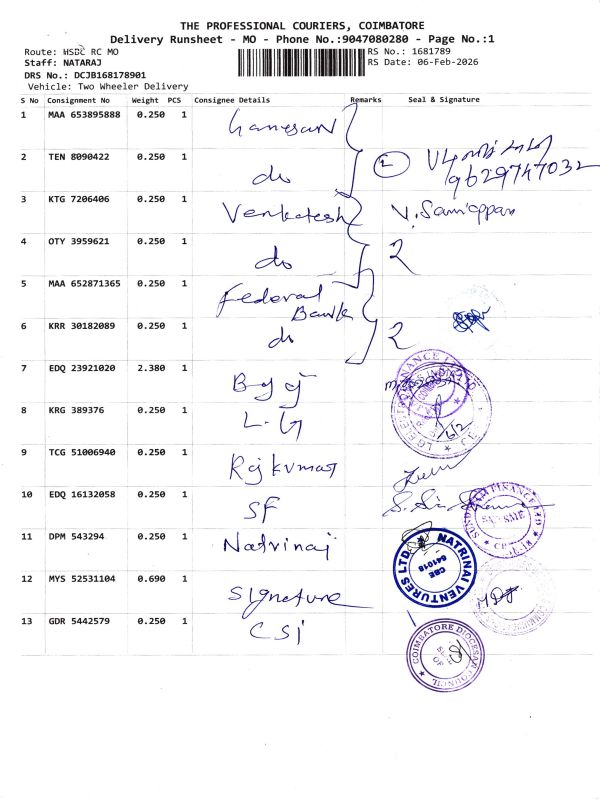 THE PROFESSIONAL COURIERS, COIMBATORE
Delivery Runsheet - MO - Phone No.:9047080280 - Page No.:1
Route: WSDC RC MO
RS No.: 1681789
Staff: NATARAJ
RS Date: 06-Feb-2026
DRS No.: DCJB168178901
Vehicle: Two Wheeler Delivery
S No Consignment No Weight PCS Consignee Details Remarks Seal & Signature
1 MAA 653895888 0.250 1 Ganesan
2 TEN 8090422 0.250 1 do 2 9629747032
3 KTG 7206406 0.250 1 Venkatesh V. Samiappan
4 OTY 3959621 0.250 1 do 2
5 MAA 652871365 0.250 1 Federal Bank
6 KRR 30182089 0.250 1 do 2
7 EDQ 23921020 2.380 1
8 KRG 389376 0.250 1 L.G
9 TCG 51006940 0.250 1 Rajkumar
10 EDQ 16132058 0.250 1 SF
11 DPM 543294 0.250 1 Natrinai
NATRINAI VENTURES LTD
CBE
641018
12 MYS 52531104 0.690 1 Signature
13 GDR 5442579 0.250 1 CSI
COIMBATORE DIOCESAN COUNCIL